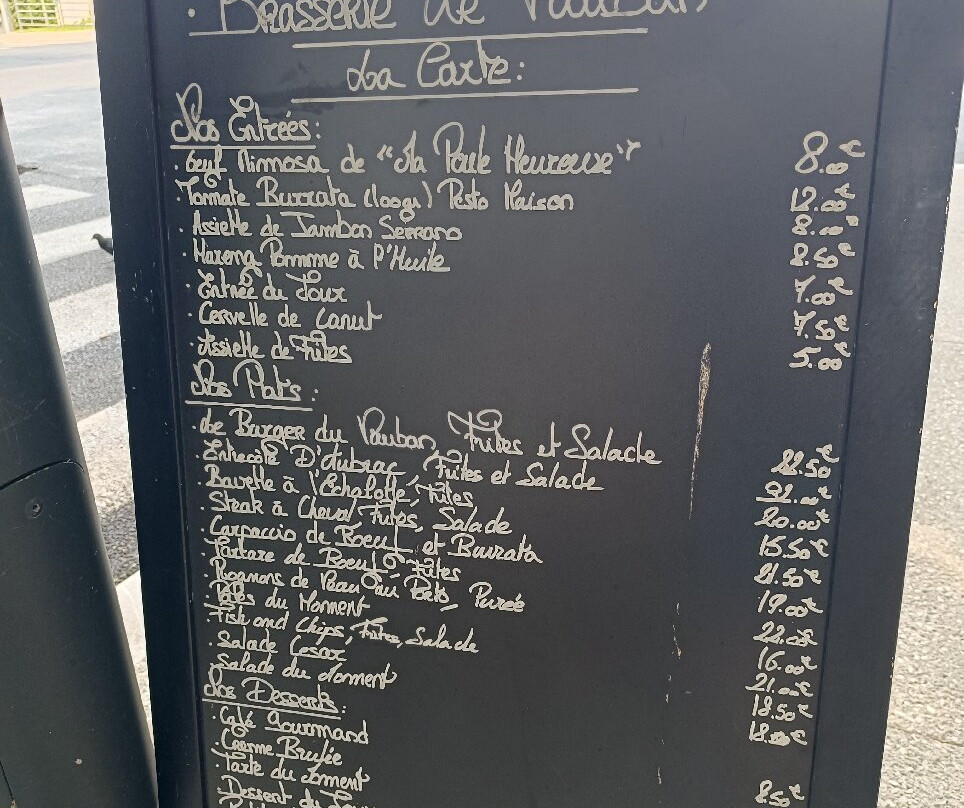 . Brasserie de Vauban
La Carte:
Nos Entrées:
. Oeuf Mimosa de "La Poule Heureuse" 8.00€
. Tomate Burrata (100gr) Pesto Maison 12.00€
. Assiette de Jambon Serrano 8.00€
. Hareng Pomme à l'Huile 8.50€
. Entrée du Jour 7.00€
. Cervelle de Canut 7.50€
. Assiette de Frites 5.00€
Nos Plats:
. Le Burger du Vauban, Frites et Salade 22.50€
. Entrecôte D'Aubrac, Frites et Salade 31.00€
. Bavette à l'Echalotte, Frites 20.00€
. Steak à Cheval Frites, Salade 15.50€
. Carpaccio de Boeuf et Burrata 21.50€
. Tartare de Boeuf, Frites 19.00€
. Rognons de Veau au Porto, Purée 22.00€
. Pâtes du Moment 16.00€
. Fish and Chips, Frites, Salade 21.00€
. Salade Cesar 18.50€
. Salade du Moment 18.00€
Nos Desserts:
. Café Gourmand
. Crème Brulée
. Tarte du Moment 8.50€
. Dessert du Jour